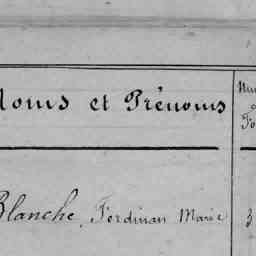 Noms et Prénoms
Blanche, Ferdinan Marie
3